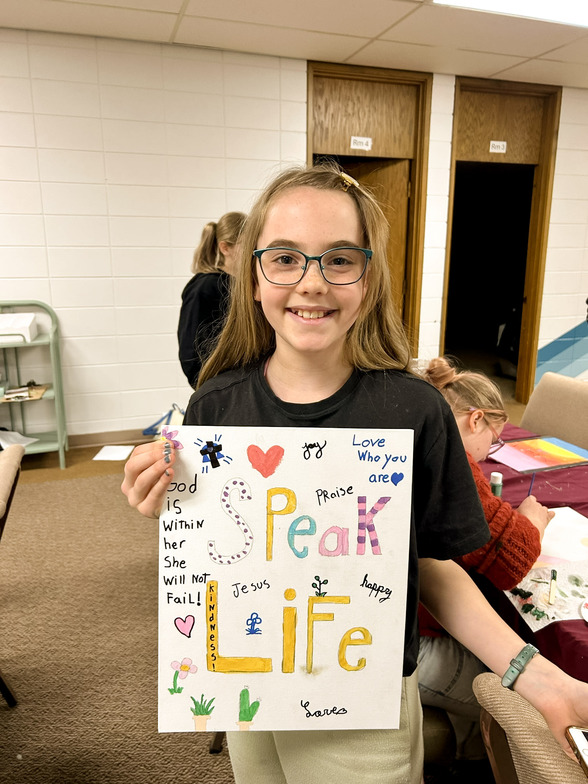 Rm-4
Rm-3
joy
Love
Who you
are
God
is
Within
her
She
Will Not
Fail!
PRaise
SPeaK
Jesus
happy
Kindness!
LiFe
Loves